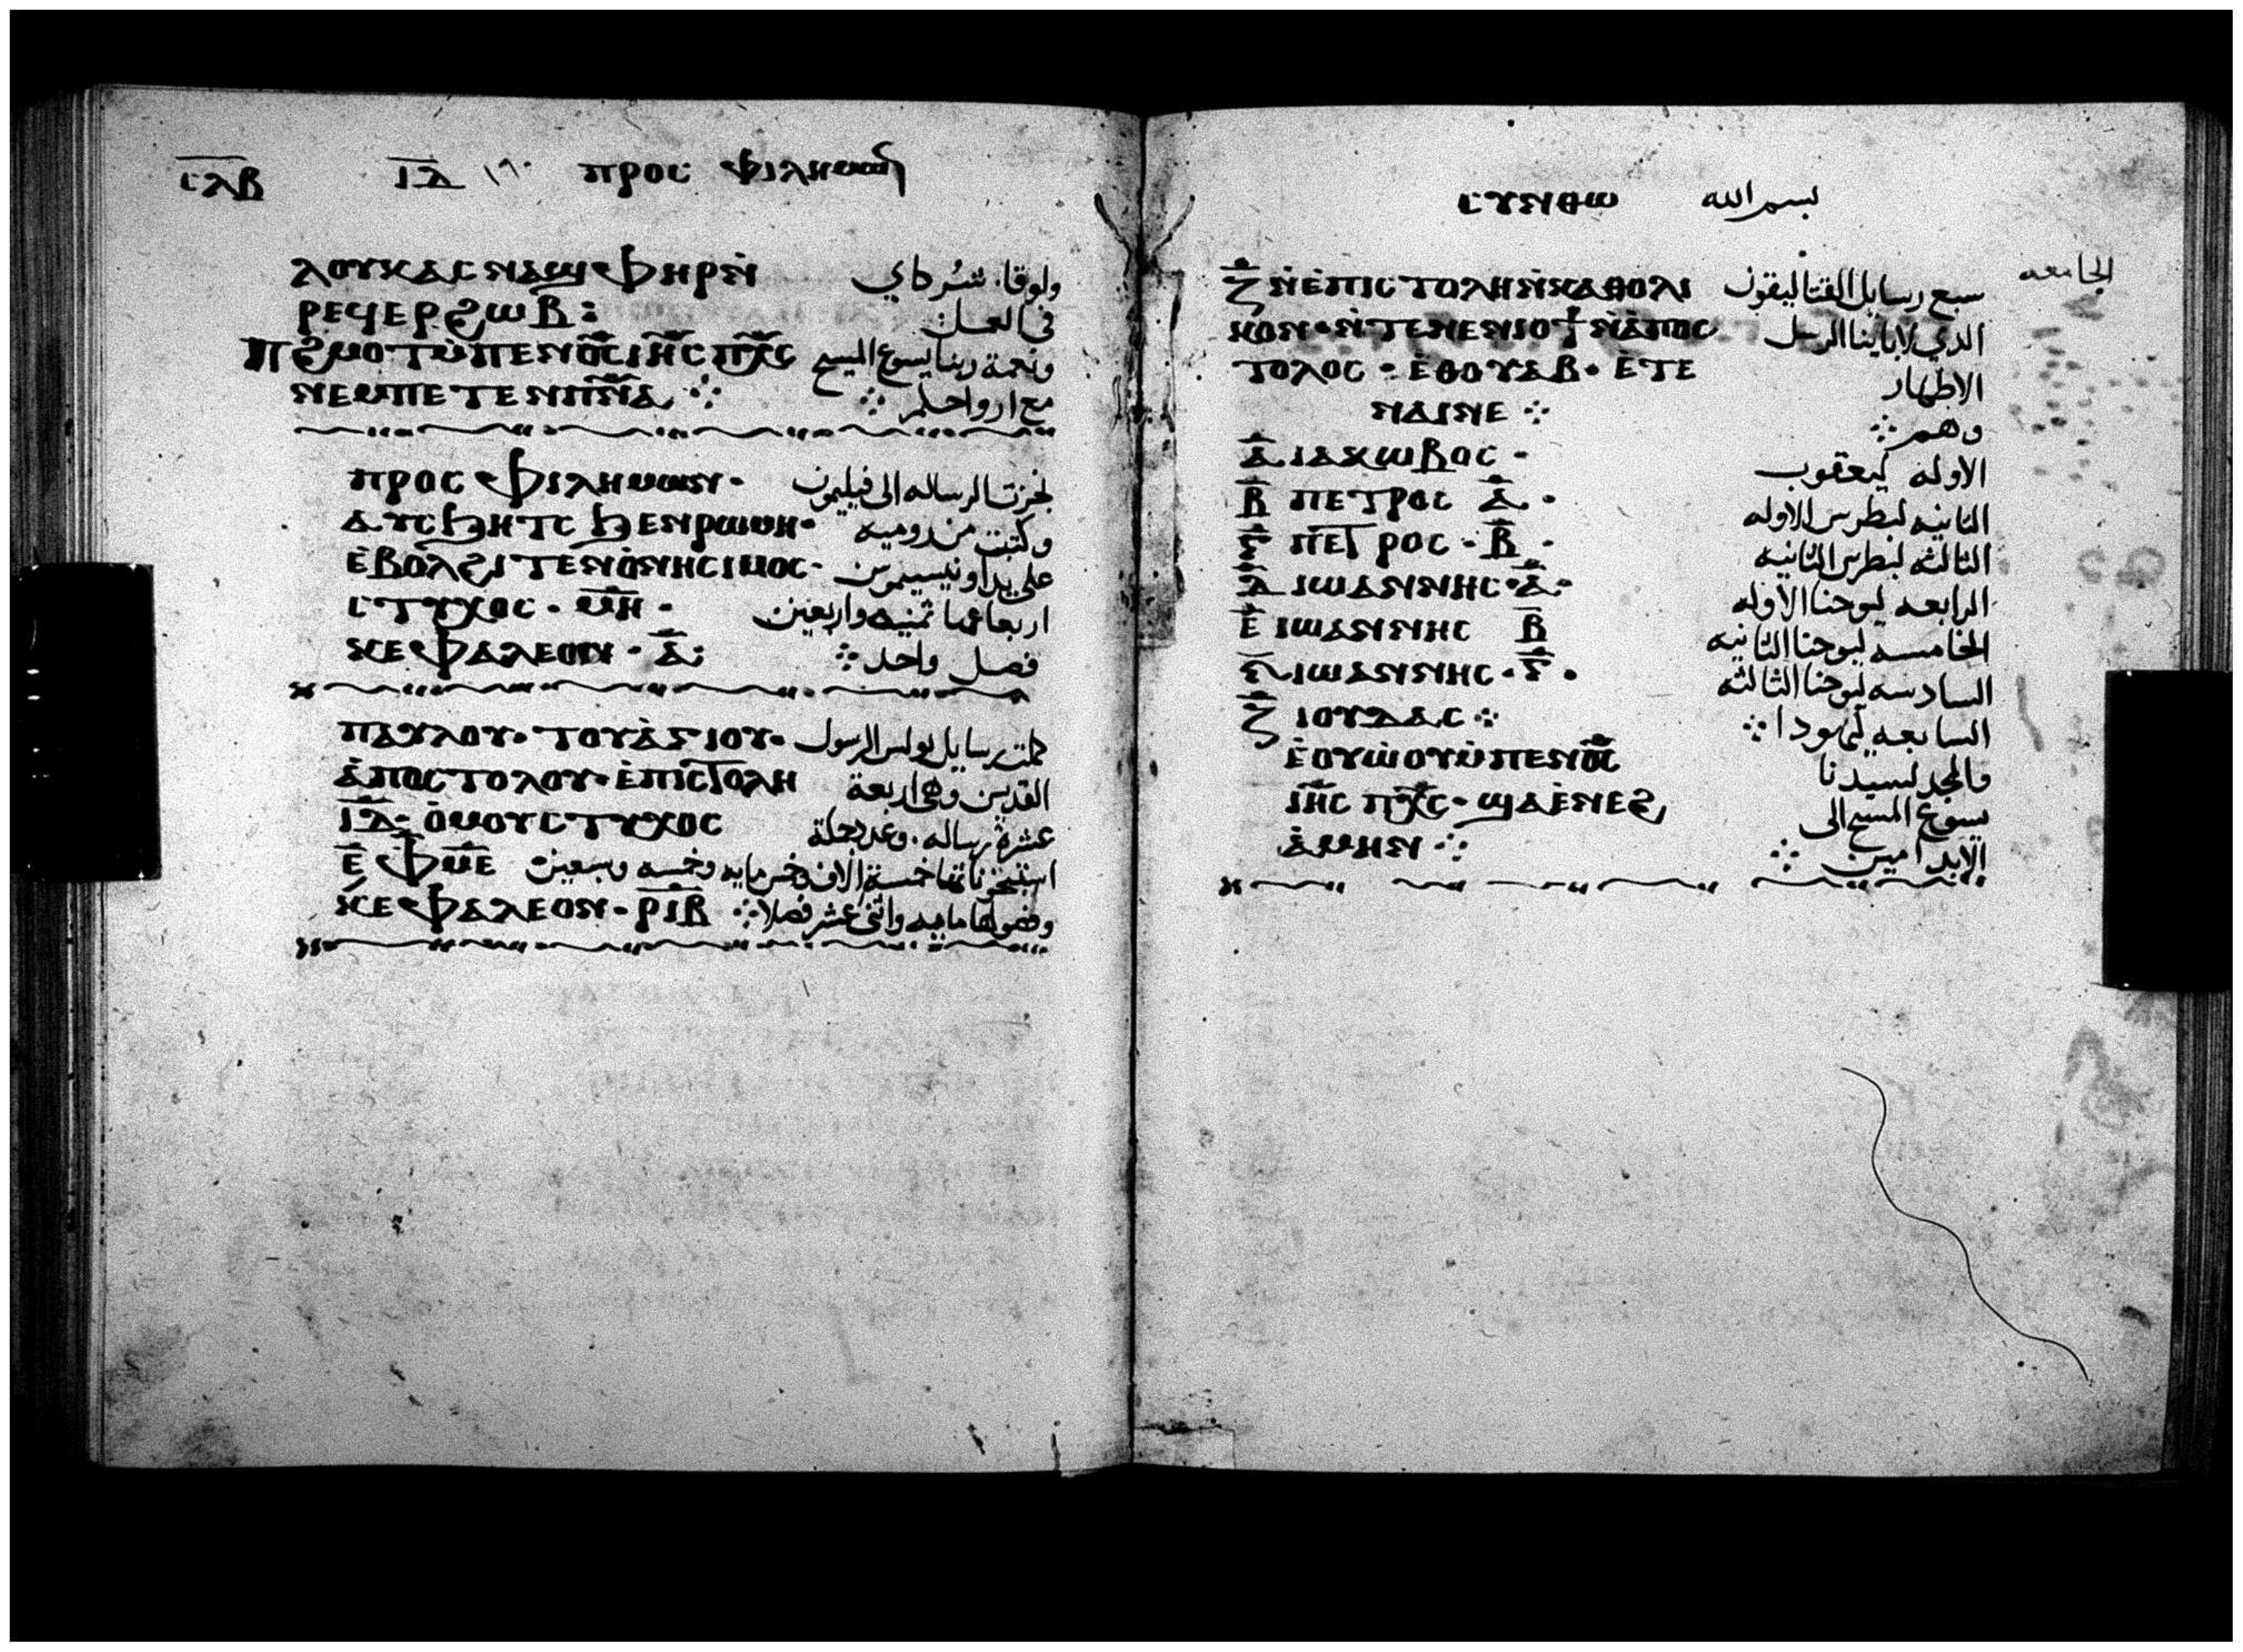 ⲥⲗⲃ ⲓⲇ ١٩٠ ⲡⲣⲟⲥ ⲫⲓⲗⲏⲙⲱⲛ
ⲗⲟⲩⲕⲁⲥ ⲛⲁϣⲫⲏⲣⲛ̀ ولوقا. شركاي
ⲣⲉϥⲉⲣϩⲱⲃ: في العمل
ⲡϩⲙⲟⲧ ⲙ̀ⲡⲉⲛⲟ̅ⲥ̅ ⲓⲏ̅ⲥ̅ ⲡⲭ̅ⲥ̅ ونعمة ربنا يسوع المسيح
ⲛⲉⲙⲡⲉⲧⲉⲛⲡ̅ⲛ̅ⲁ̅ ⁘ مع ارواحكم ⁘
ⲡⲣⲟⲥ ⲫⲓⲗⲏⲙⲱⲛ· نجزت الرساله الى فيليمون
ⲁⲩⲥϧⲏⲧⲥ ϧⲉⲛⲣⲱⲙⲏ· وكتبت من روميه
ⲉ̀ⲃⲟⲗϩⲓⲧⲉⲛⲟ̀ⲛⲏⲥⲓⲙⲟⲥ· على يد اونيسيموس
ⲥⲧⲩⲭⲟⲥ· ⲙ̅ⲏ̅· ثمنيه واربعين
ⲕⲉⲫⲁⲗⲉⲟⲛ· ⲁ̅: فصل واحد ⁘
ⲡⲁⲩⲗⲟⲩ· ⲧⲟⲩⲁ̀ⲅⲓⲟⲩ· كملت رسايل بولس الرسول
ⲁ̀ⲡⲟⲥⲧⲟⲗⲟⲩ· ⲉ̀ⲡⲓⲥⲧⲟⲗⲏ القديس وهي اربعة
ⲓ̅ⲇ̅· ⲟ̀ⲙⲟⲩⲥⲧⲩⲭⲟⲥ عشرة رساله. وعدد جملة
ⲉ̅ ⲫ̅ⲙ̅ⲉ̅ خمسة الاف وخمس مايه وخمسه
ⲕⲉⲫⲁⲗⲉⲟⲛ· ⲣ̅ⲓ̅ⲃ̅ وفصولها مايه واثنى عشر فصلا ⁘
ⲥⲩⲛⲑⲱ بسم الله
ⲍ̅ ⲛ̀ⲉ̀ⲡⲓⲥⲧⲟⲗⲏ ⲛ̀ⲕⲁⲑⲟⲗⲓ سبع رسايل القتاليقون الجامعه
ⲕⲟⲛ· ⲛ̀ⲧⲉⲛⲉⲛⲓⲟϯ ⲛ̀ⲁ̀ⲡⲟⲥ الذي لاباينا الرسل
ⲧⲟⲗⲟⲥ· ⲉ̀ⲑⲟⲩⲁⲃ· ⲉ̀ⲧⲉ الاطهار
ⲛⲁⲓⲛⲉ ⁘ وهم ⁘
ⲁ̅ ⲓⲁⲕⲱⲃⲟⲥ· الاوله ليعقوب
ⲃ̅ ⲡⲉⲧⲣⲟⲥ ⲁ̅· الثانيه لبطرس الاوله
ⲅ̅ ⲡⲉⲧⲣⲟⲥ· ⲃ̅· الثالثه لبطرس الثانيه
ⲇ̅ ⲓⲱⲁⲛⲛⲏⲥ· ⲁ̅· الرابعه ليوحنا الاوله
ⲉ̅ ⲓⲱⲁⲛⲛⲏⲥ ⲃ̅ الخامسه ليوحنا الثانيه
ⲋ̅ ⲓⲱⲁⲛⲛⲏⲥ· ⲅ̅· السادسه ليوحنا الثالثه
ⲍ̅ ⲓⲟⲩⲇⲁⲥ ⁘ السابعه ليهودا ⁘
ⲉ̀ⲟⲩⲱ̀ⲟⲩ ⲙ̀ⲡⲉⲛⲟ̅ⲥ̅ والمجد لسيدنا
ⲓⲏ̅ⲥ̅ ⲡⲭ̅ⲥ̅· ϣⲁⲉ̀ⲛⲉϩ يسوع المسيح الى
ⲁ̀ⲙⲏⲛ ⁘ الابد امين ⁘